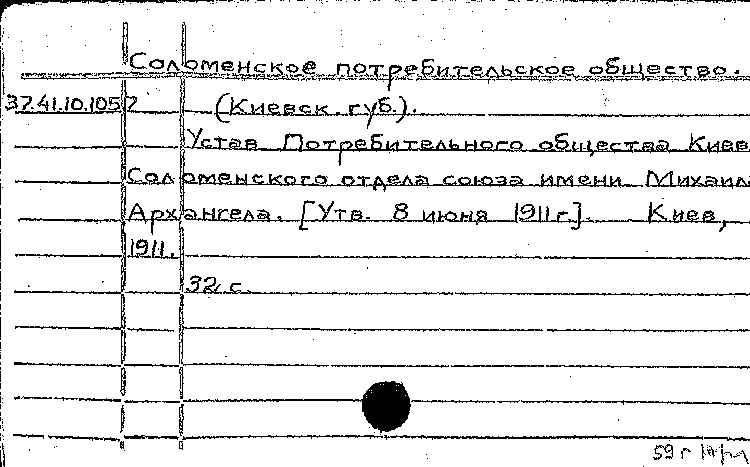 Соломенское потребительское общество.
37.41.10.1052 (Киевск. губ.).
Устав Потребительного общества Киев
Соломенского отдела союза имени Михаил
Архангела. [Утв. 8 июня 1911 г.]. Киев,
1911.
32 с.
59 г